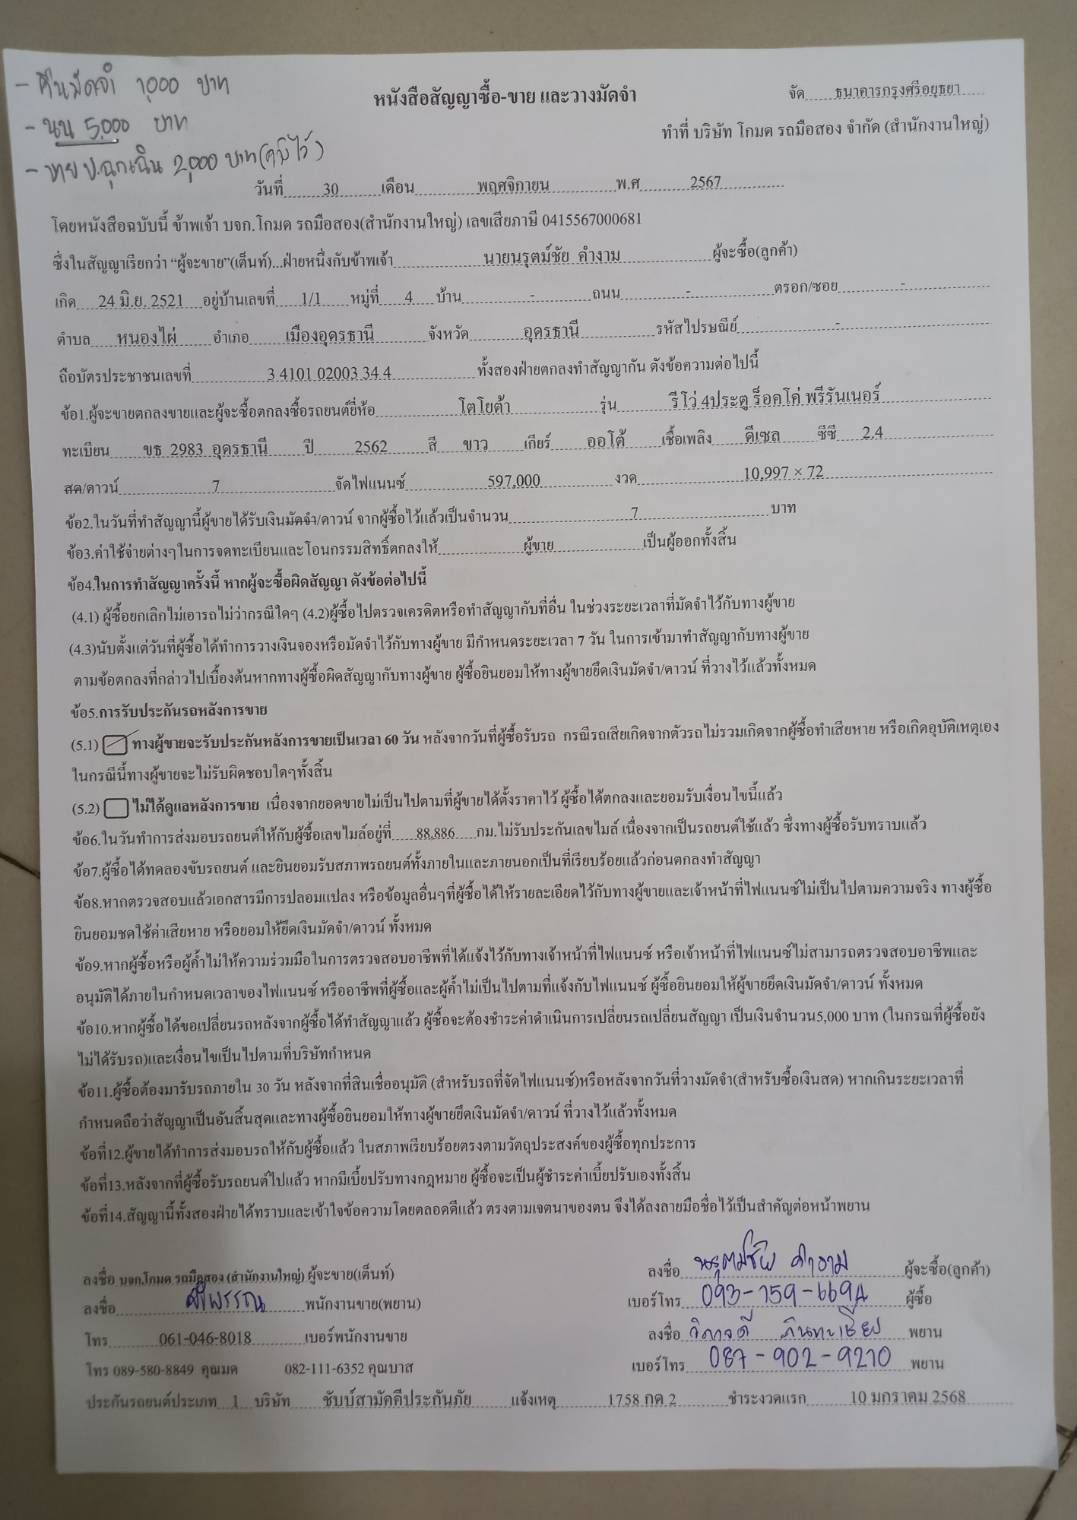 - คืนมัดจำ 1,000 บาท
- นน 5,000 บาท
- ขาย ป.ฉุกเฉิน 2,000 บาท(คูมิไว้)
หนังสือสัญญาซื้อ-ขาย และวางมัดจำ
จัด ธนาคารกรุงศรีอยุธยา
ทำที่ บริษัท โกมด รถมือสอง จำกัด (สำนักงานใหญ่)
วันที่ 30 เดือน พฤศจิกายน พ.ศ 2567
โดยหนังสือฉบับนี้ ข้าพเจ้า บจก.โกมด รถมือสอง(สำนักงานใหญ่) เลขเสียภาษี 0415567000681
ซึ่งในสัญญาเรียกว่า “ผู้จะขาย”(เต็นท์)...ฝ่ายหนึ่งกับข้าพเจ้า นายนรุตม์ชัย คำงาม ผู้จะซื้อ(ลูกค้า)
เกิด 24 มิ.ย. 2521 อยู่บ้านเลขที่ 1/1 หมู่ที่ 4 บ้าน - ถนน - ตรอก/ซอย -
ตำบล หนองไผ่ อำเภอ เมืองอุดรธานี จังหวัด อุดรธานี รหัสไปรษณีย์ -
ถือบัตรประชาชนเลขที่ 3 4101 02003 34 4 ทั้งสองฝ่ายตกลงทำสัญญากัน ดังข้อความต่อไปนี้
ข้อ1.ผู้จะขายตกลงขายและผู้จะซื้อตกลงซื้อรถยนต์ยี่ห้อ โตโยต้า รุ่น รีโว่ 4ประตู ร็อคโค่ พรีรันเนอร์
ทะเบียน ขธ 2983 อุดรธานี ปี 2562 สี ขาว เกียร์ ออโต้ เชื้อเพลิง ดีเซล ซีซี 2.4
สด/ดาวน์ 7 จัดไฟแนนซ์ 597,000 งวด 10,997 × 72
ข้อ2.ในวันที่ทำสัญญานี้ผู้ขายได้รับเงินมัดจำ/ดาวน์ จากผู้ซื้อไว้แล้วเป็นจำนวน 7 บาท
ข้อ3.ค่าใช้จ่ายต่างๆในการจดทะเบียนและโอนกรรมสิทธิ์ตกลงให้ ผู้ขาย เป็นผู้ออกทั้งสิ้น
ข้อ4.ในการทำสัญญาครั้งนี้ หากผู้จะซื้อผิดสัญญา ดังข้อต่อไปนี้
(4.1) ผู้ซื้อยกเลิกไม่เอารถไม่ว่ากรณีใดๆ (4.2)ผู้ซื้อไปตรวจเครดิตหรือทำสัญญากับที่อื่น ในช่วงระยะเวลาที่มัดจำไว้กับทางผู้ขาย
(4.3)นับตั้งแต่วันที่ผู้ซื้อได้ทำการวางเงินจองหรือมัดจำไว้กับทางผู้ขาย มีกำหนดระยะเวลา 7 วัน ในการเข้ามาทำสัญญากับทางผู้ขาย
ตามข้อตกลงที่กล่าวไปเบื้องต้นหากทางผู้ซื้อผิดสัญญากับทางผู้ขาย ผู้ซื้อยินยอมให้ทางผู้ขายยึดเงินมัดจำ/ดาวน์ ที่วางไว้แล้วทั้งหมด
ข้อ5.การรับประกันรถหลังการขาย
(5.1) ทางผู้ขายจะรับประกันหลังการขายเป็นเวลา 60 วัน หลังจากวันที่ผู้ซื้อรับรถ กรณีรถเสียเกิดจากตัวรถไม่รวมเกิดจากผู้ซื้อทำเสียหาย หรือเกิดอุบัติเหตุเอง
ในกรณีนี้ทางผู้ขายจะไม่รับผิดชอบใดๆทั้งสิ้น
(5.2) ไม่ได้ดูแลหลังการขาย เนื่องจากยอดขายไม่เป็นไปตามที่ผู้ขายได้ตั้งราคาไว้ ผู้ซื้อได้ตกลงและยอมรับเงื่อนไขนี้แล้ว
ข้อ6.ในวันทำการส่งมอบรถยนต์ให้กับผู้ซื้อเลขไมล์อยู่ที่ 88,886 กม.ไม่รับประกันเลขไมล์ เนื่องจากเป็นรถยนต์ใช้แล้ว ซึ่งทางผู้ซื้อรับทราบแล้ว
ข้อ7.ผู้ซื้อได้ทดลองขับรถยนต์ และยินยอมรับสภาพรถยนต์ทั้งภายในและภายนอกเป็นที่เรียบร้อยแล้วก่อนตกลงทำสัญญา
ข้อ8.หากตรวจสอบแล้วเอกสารมีการปลอมแปลง หรือข้อมูลอื่นๆที่ผู้ซื้อได้ให้รายละเอียดไว้กับทางผู้ขายและเจ้าหน้าที่ไฟแนนซ์ไม่เป็นไปตามความจริง ทางผู้ซื้อ
ยินยอมชดใช้ค่าเสียหาย หรือยอมให้ยึดเงินมัดจำ/ดาวน์ ทั้งหมด
ข้อ9.หากผู้ซื้อหรือผู้ค้ำไม่ให้ความร่วมมือในการตรวจสอบอาชีพที่ได้แจ้งไว้กับทางเจ้าหน้าที่ไฟแนนซ์ หรือเจ้าหน้าที่ไฟแนนซ์ไม่สามารถตรวจสอบอาชีพและ
อนุมัติได้ภายในกำหนดเวลาของไฟแนนซ์ หรืออาชีพที่ผู้ซื้อและผู้ค้ำไม่เป็นไปตามที่แจ้งกับไฟแนนซ์ ผู้ซื้อยินยอมให้ผู้ขายยึดเงินมัดจำ/ดาวน์ ทั้งหมด
ข้อ10.หากผู้ซื้อได้ขอเปลี่ยนรถหลังจากผู้ซื้อได้ทำสัญญาแล้ว ผู้ซื้อจะต้องชำระค่าดำเนินการเปลี่ยนรถเปลี่ยนสัญญา เป็นเงินจำนวน5,000 บาท (ในกรณที่ผู้ซื้อยัง
ไม่ได้รับรถ)และเงื่อนไขเป็นไปตามที่บริษัทกำหนด
ข้อ11.ผู้ซื้อต้องมารับรถภายใน 30 วัน หลังจากที่สินเชื่ออนุมัติ (สำหรับรถที่จัดไฟแนนซ์)หรือหลังจากวันที่วางมัดจำ(สำหรับซื้อเงินสด) หากเกินระยะเวลาที่
กำหนดถือว่าสัญญาเป็นอันสิ้นสุดและทางผู้ซื้อยินยอมให้ทางผู้ขายยึดเงินมัดจำ/ดาวน์ ที่วางไว้แล้วทั้งหมด
ข้อที่12.ผู้ขายได้ทำการส่งมอบรถให้กับผู้ซื้อแล้ว ในสภาพเรียบร้อยตรงตามวัตถุประสงค์ของผู้ซื้อทุกประการ
ข้อที่13.หลังจากที่ผู้ซื้อรับรถยนต์ไปแล้ว หากมีเบี้ยปรับทางกฎหมาย ผู้ซื้อจะเป็นผู้ชำระค่าเบี้ยปรับเองทั้งสิ้น
ข้อที่14.สัญญานี้ทั้งสองฝ่ายได้ทราบและเข้าใจข้อความโดยตลอดดีแล้ว ตรงตามเจตนาของตน จึงได้ลงลายมือชื่อไว้เป็นสำคัญต่อหน้าพยาน
ลงชื่อ บจก.โกมด รถมือสอง (สำนักงานใหญ่) ผู้จะขาย(เต็นท์)
ลงชื่อ นรุตม์ชัย คำงาม ผู้จะซื้อ(ลูกค้า)
ลงชื่อ ศิริพรรณ พนักงานขาย(พยาน)
เบอร์โทร 093-759-6694 ผู้ซื้อ
โทร 061-046-8018 เบอร์พนักงานขาย
ลงชื่อ วิภาวดี พยาน
โทร 089-580-8849 คุณมด 082-111-6352 คุณบาส
เบอร์โทร 087-902-9210 พยาน
ประกันรถยนต์ประเภท 1 บริษัท ชับบ์สามัคคีประกันภัย แจ้งเหตุ 1758 กด 2 ชำระงวดแรก 10 มกราคม 2568